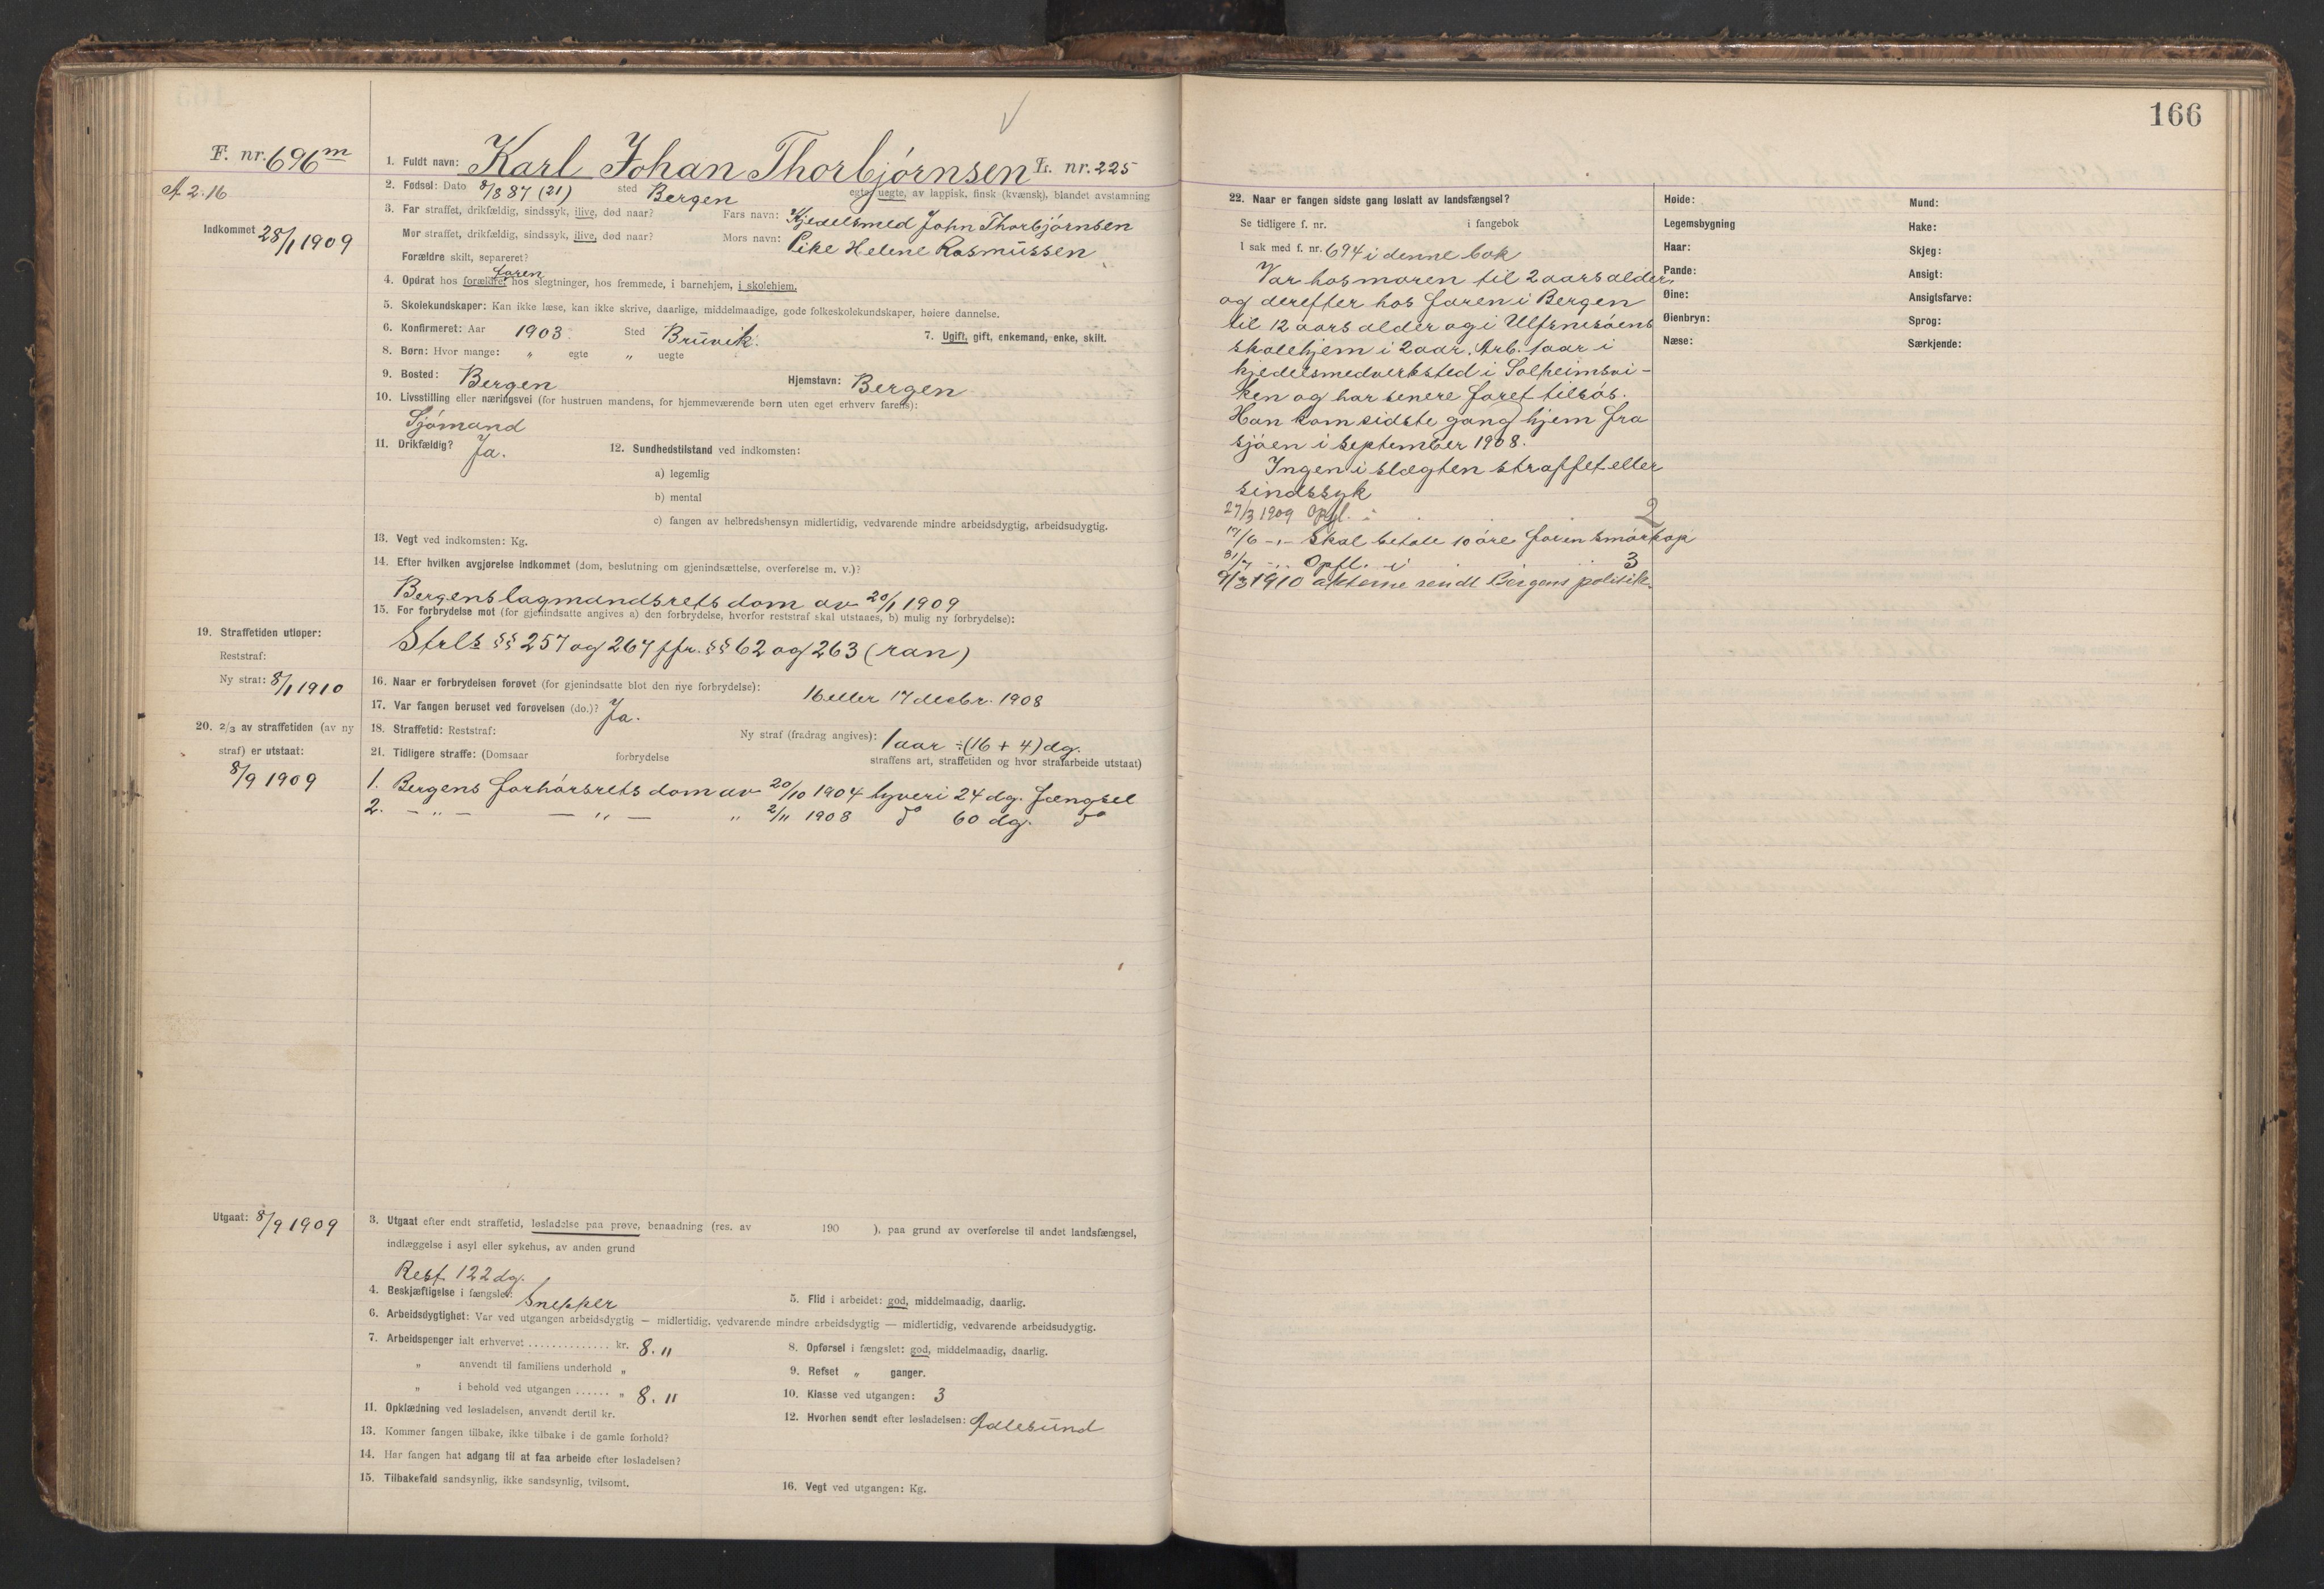 166
F. nr. 696 m
A 2.16
Indkommet 28/1 1909
1. Fuldt navn: Karl Johan Thorbjørnsen L. nr. 225
2. Fødsel: Dato 8/8 87 (21) sted Bergen egte, uegte, av lappisk, finsk (kvænsk), blandet avstamning
3. Far straffet, drikfældig, sindssyk, ilive, død naar? Fars navn: Kjedelsmed John Thorbjørnsen
Mor straffet, drikfældig, sindssyk, ilive, død naar? Mors navn: Pike Helene Rasmussen
Forældre skilt, separeret?
faren
4. Opdrat hos forældre, hos slegtninger, hos fremmede, i barnehjem, i skolehjem.
5. Skolekundskaper: Kan ikke læse, kan ikke skrive, daarlige, middelmaadige, gode folkeskolekundskaper, høiere dannelse.
6. Konfirmeret: Aar 1903 Sted Bruvik. 7. Ugift, gift, enkemand, enke, skilt.
8. Børn: Hvor mange: " egte " uegte
9. Bosted: Bergen Hjemstavn: Bergen
10. Livsstilling eller næringsvei (for hustruen mandens, for hjemmeværende børn uten eget erhverv farens):
Sjømand
11. Drikfældig? Ja. 12. Sundhedstilstand ved indkomsten:
a) legemlig
b) mental
c) fangen av helbredshensyn midlertidig, vedvarende mindre arbeidsdygtig, arbeidsudygtig.
13. Vegt ved indkomsten: Kg.
14. Efter hvilken avgjørelse indkommet (dom, beslutning om gjenindsættelse, overførelse m. v.)?
Bergens lagmandsrets dom av 20/1 1909
15. For forbrydelse mot (for gjenindsatte angives a) den forbrydelse, hvorfor reststraf skal utstaaes, b) mulig ny forbrydelse):
Strls §§ 257 og 267 jfr. §§ 62 og 263 (ran)
19. Straffetiden utløper:
Reststraf:
Ny straf: 8/1 1910
16. Naar er forbrydelsen forøvet (for gjenindsatte blot den nye forbrydelse): 16 eller 17 decbr. 1908
17. Var fangen beruset ved forøvelsen (do.)? Ja.
18. Straffetid: Reststraf: Ny straf (fradrag angives): 1 aar ÷ (16 + 4) dg.
20. 2/3 av straffetiden (av ny
straf) er utstaat:
8/9 1909
21. Tidligere straffe: (Domsaar forbrydelse straffens art, straffetiden og hvor strafarbeide utstaat)
1. Bergens forhørsrets dom av 20/10 1904 tyveri 24 dg. fængsel
2. — " — — " — " 2/11 1908 do 60 dg. do
Utgaat: 8/9 1909
3. Utgaat efter endt straffetid, løsladelse paa prøve, benaadning (res. av 190 ), paa grund av overførelse til andet landsfængsel,
indlæggelse i asyl eller sykehus, av anden grund
Rest 122 dg.
4. Beskjæftigelse i fængslet: Snekker 5. Flid i arbeidet: god, middelmaadig, daarlig.
6. Arbeidsdygtighet: Var ved utgangen arbeidsdygtig — midlertidig, vedvarende mindre arbeidsdygtig — midlertidig, vedvarende arbeidsudygtig.
7. Arbeidspenger ialt erhvervet .............. kr. 8. 11 8. Opførsel i fængslet: god, middelmaadig, daarlig.
" anvendt til familiens underhold " 9. Refset " ganger.
" i behold ved utgangen ...... " 8. 11 10. Klasse ved utgangen: 3
11. Opklædning ved løsladelsen, anvendt dertil kr. 12. Hvorhen sendt efter løsladelsen: Aalesund
13. Kommer fangen tilbake, ikke tilbake i de gamle forhold?
14. Har fangen hat adgang til at faa arbeide efter løsladelsen?
15. Tilbakefald sandsynlig, ikke sandsynlig, tvilsomt. 16. Vegt ved utgangen: Kg.
22. Naar er fangen sidste gang løslatt av landsfængsel?
Se tidligere f. nr. i fangebok
I sak med f. nr. 694 i denne bok
Var hos moren til 2 aars alder,
og derefter hos faren i Bergen
til 12 aars alder og i Ulfsnesøens
skolehjem i 2 aar. Arb. 1 aar i
kjedelsmedverksted i Solheimsvi-
ken og har senere faret tilsøs.
Han kom sidste gang hjem fra
sjøen i september 1908.
Ingen i slægten straffet eller
sindssyk
27/3 1909 Opfl. i 2
17/6 -"- Skal betale 10 øre for en smørkop
31/7 -"- Opfl. i 3
9/3 1910 akterne sendt Bergens politik.
Høide:
Legemsbygning
Haar:
Pande:
Øine:
Øienbryn:
Næse:
Mund:
Hake:
Skjeg:
Ansigt:
Ansigtsfarve:
Sprog:
Særkjende: